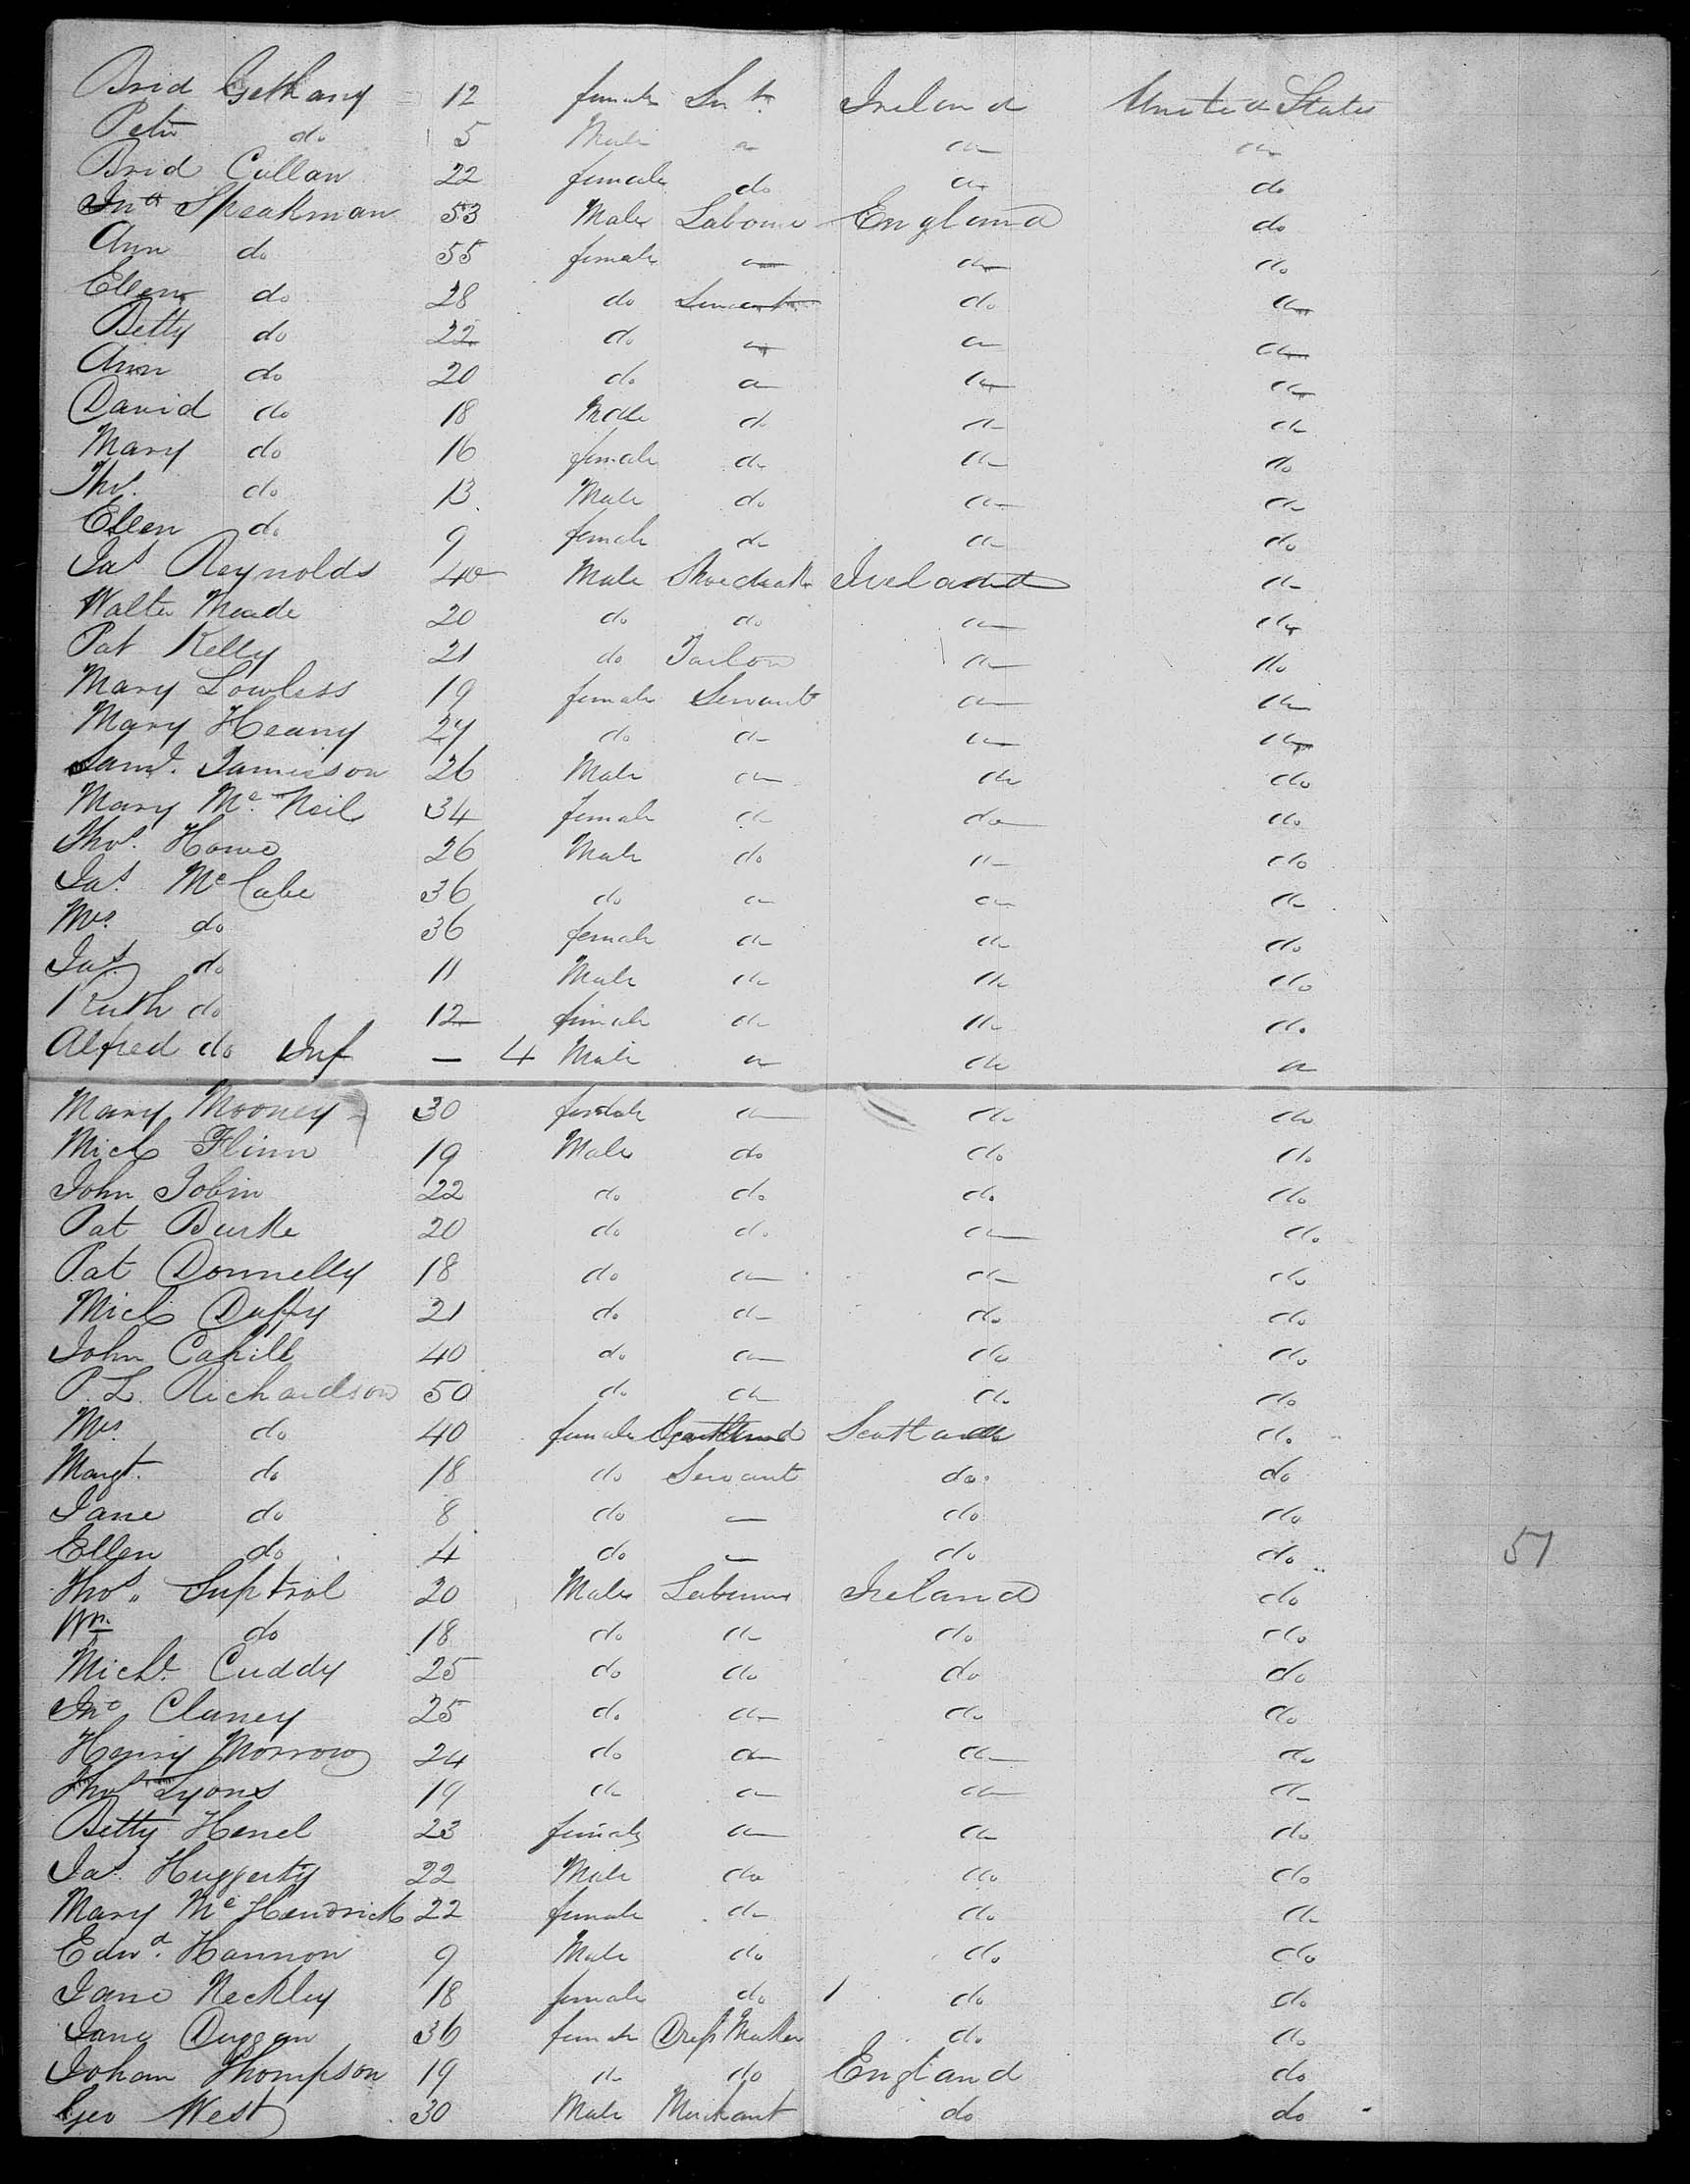 Brid Gethany 12 female Svt. Ireland United States
Peter do 5 Male do do do
Brid Cullan 22 female do do do
Jno Speakman 53 Male Labourer England do
Ann do 55 female do do do
Ellen do 28 do Servant do do
Betty do 22 do do do do
Ann do 20 do do do do
David do 18 Male do do do
Mary do 16 female do do do
Thos. do 13 Male do do do
Ellen do 9 female do do do
Jas Reynolds 40 Male Ireland do
Walter Meade 20 do do do do
Pat Kelly 21 do Tailor do do
Mary Lowless 19 female Servant do do
Mary Heany 27 do do do do
Saml. Jamieson 26 Male do do do
Mary Mc Neil 34 female do do do
Thos. Howe 26 Male do do do
Jas. McCabe 36 do do do do
Mrs. do 36 female do do do
Jas. do 11 Male do do do
Ruth do 12 female do do do
Alfred do Inf — 4 Male do do do
Mary Mooney 30 female do do do
Michl Flinn 19 Male do do do
John Tobin 22 do do do do
Pat Burke 20 do do do do
Pat Donnelly 18 do do do do
Michl Duffy 21 do do do do
John Cahill 40 do do do do
P. L. Richardson 50 do do do do
Mrs. do 40 female Scotland do
Margt. do 18 do Servant do do
Jane do 8 do — do do
Ellen do 4 do — do do
57
Thos. Suptrol 20 Male Labourer Ireland do
Wm do 18 do do do do
Michl. Cuddy 25 do do do do
Jno Claney 25 do do do do
Henry Morrow 24 do do do do
Thos Lyons 19 do do do do
Betty Henel 23 female do do do
Jas. Huggerty 22 Male do do do
Mary Mc Hendrick 22 female do do do
Edwd. Hannon 9 Male do do do
Jane Neckley 18 female do do do
Jane Duggan 36 female Dress Maker do do
Johan Thompson 19 do do England do
Geo West 30 Male Merchant do do